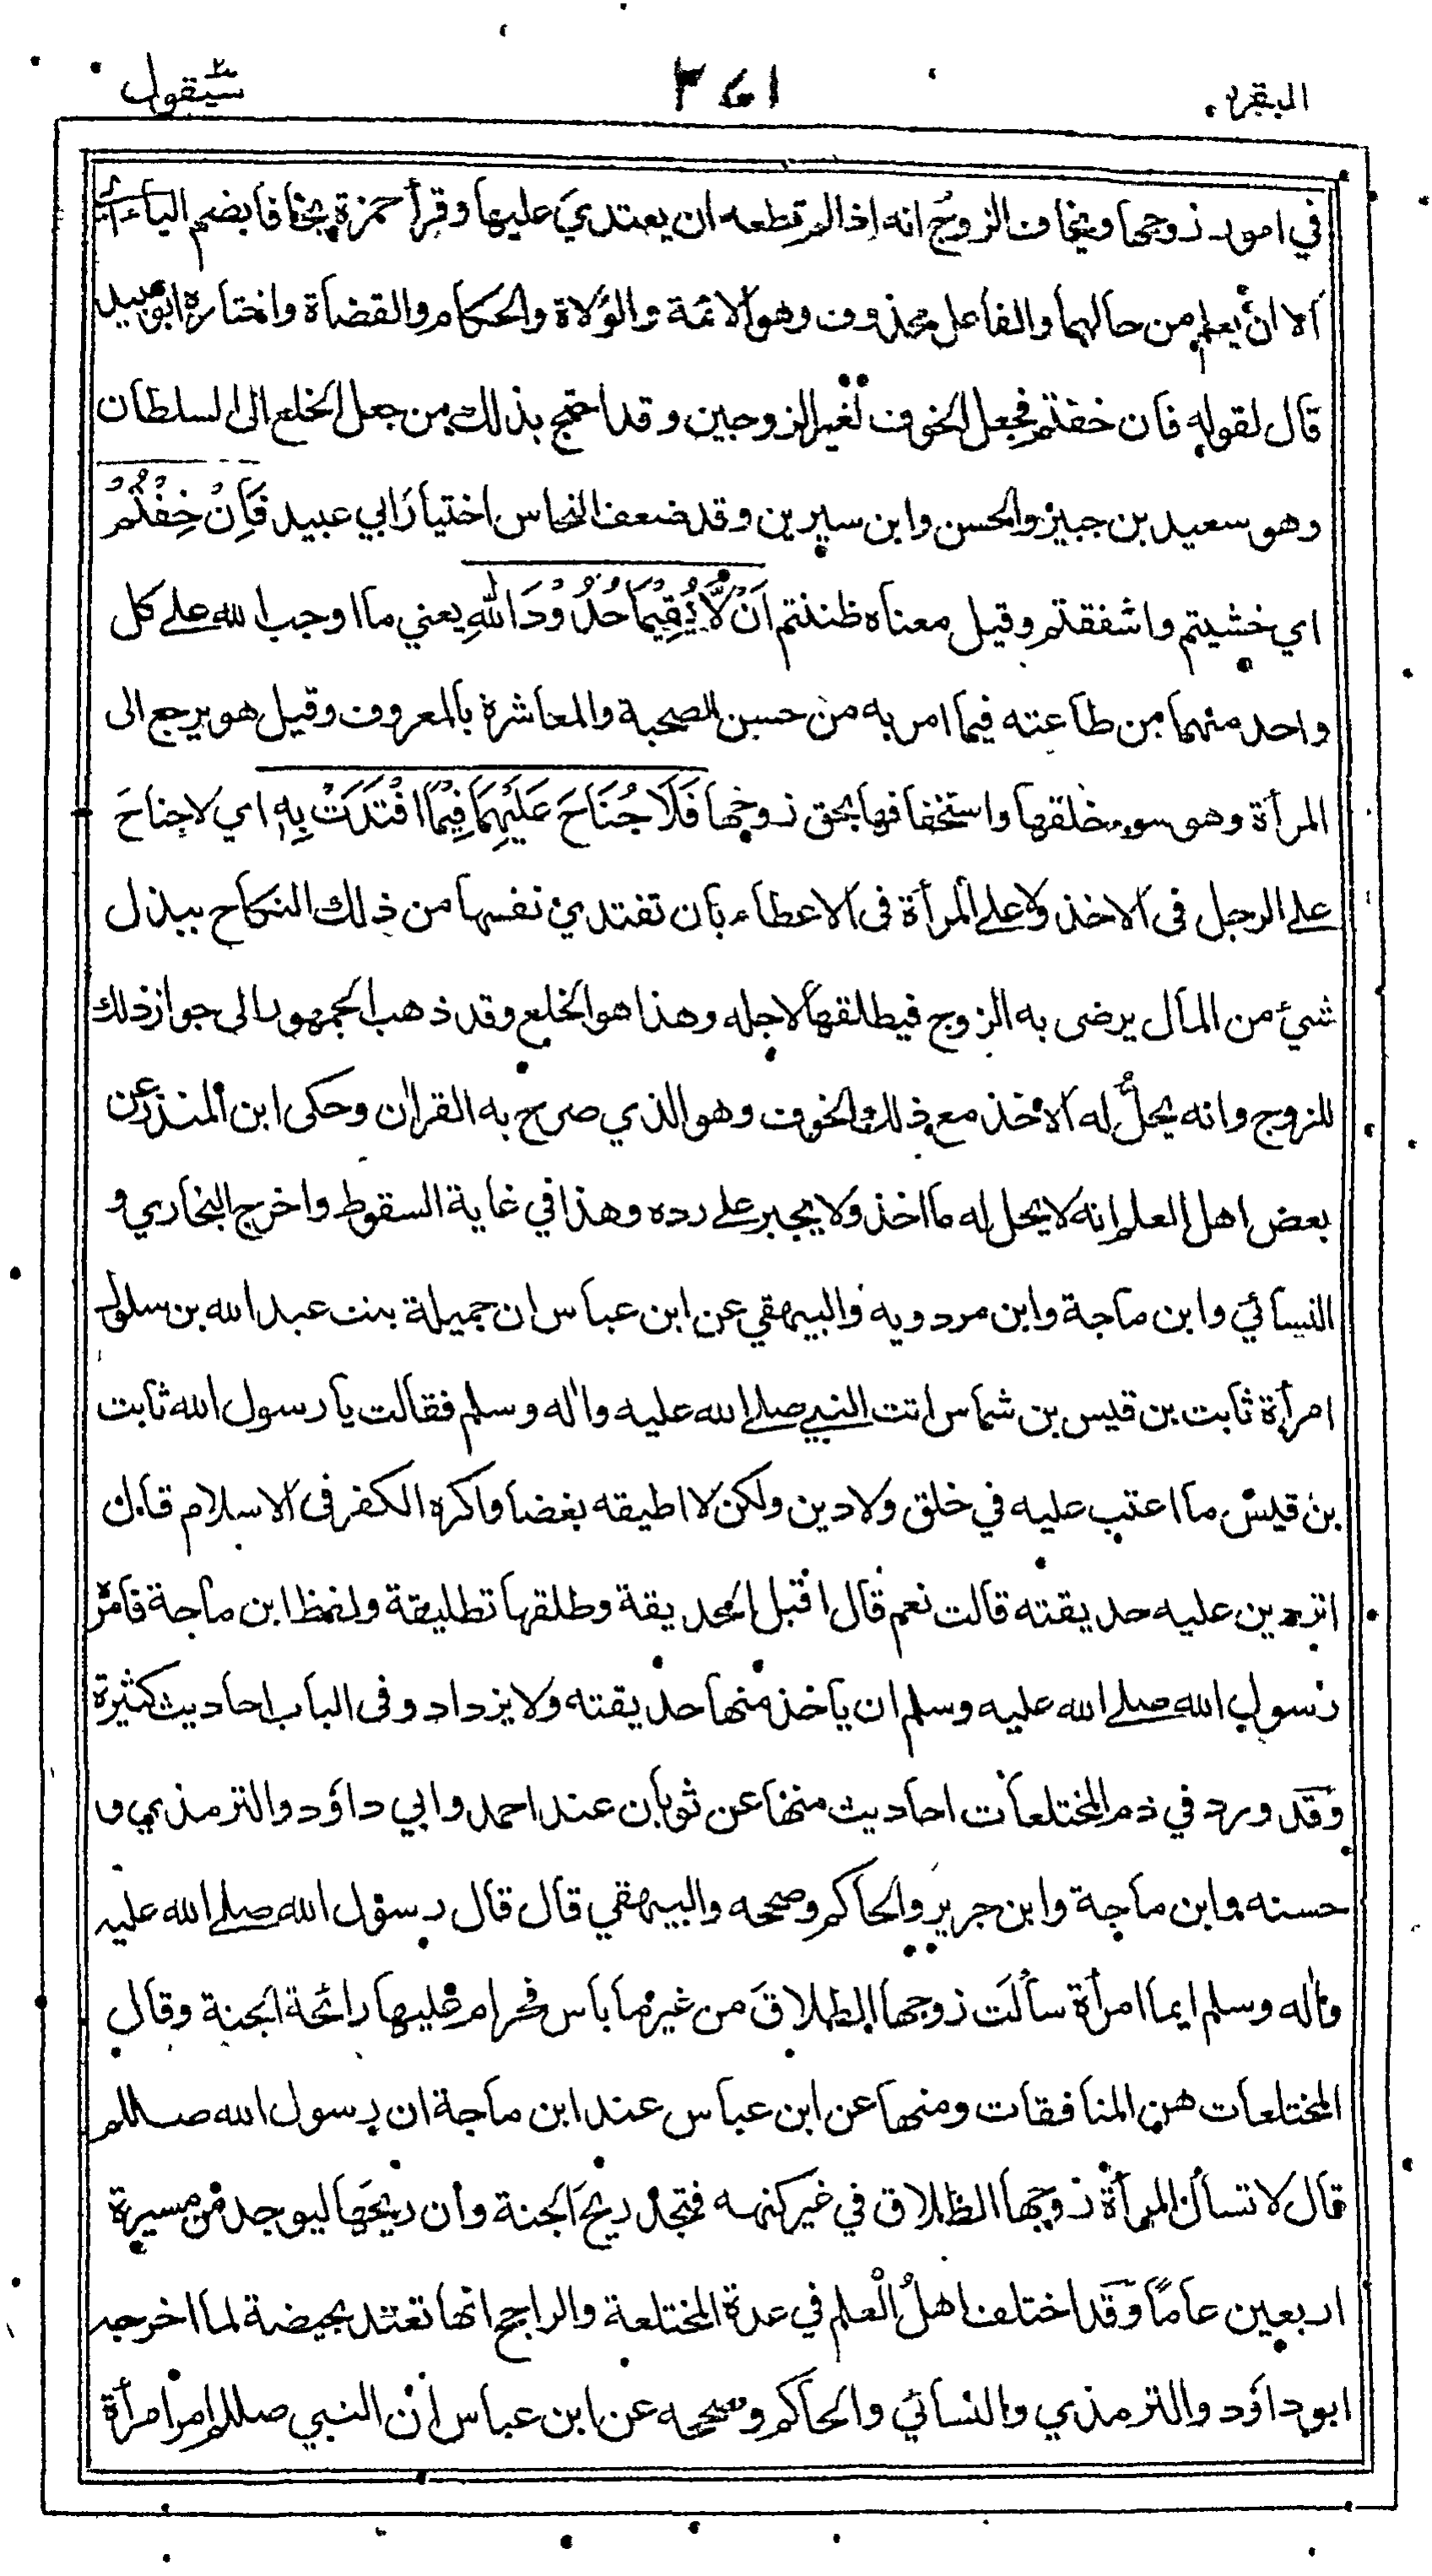 البقرة
٣٧١
سيقول ٢
في امور زوجها ويخاف الزوج انه اذا لم تطعه ان يعتدي عليها وقرأ حمزة يخافا بضم الياء اي
الا ان يعلم من حالهما والفاعل محذوف وهو الائمة والولاة والحكام والقضاة واختاره ابو عبيد
قال لقوله فان خفتم فجعل الخوف لغير الزوجين وقد احتج بذلك من جعل الخلع الى السلطان
وهو سعيد بن جبير والحسن وابن سيرين وقد ضعف النحاس اختيار ابي عبيد فَاِنْ خِفْتُمْ
اي خشيتم واشفقتم وقيل معناه ظننتم اَنْ لَّا يُقِيْمَا حُدُوْدَ اللّٰهِ يعني ما اوجب الله على كل
واحد منهما من طاعته فيما امر به من حسن الصحبة والمعاشرة بالمعروف وقيل هو يرجع الى
المرأة وهو سوء خلقها واستخفافها بحق زوجها فَلَا جُنَاحَ عَلَيْهِمَا فِيْمَا افْتَدَتْ بِهٖ اي لا جناح
على الرجل في الاخذ ولا على المرأة في الاعطاء بان تفتدي نفسها من ذلك النكاح ببذل
شيء من المال يرضى به الزوج فيطلقها لاجله وهذا هو الخلع وقد ذهب الجمهور الى جواز ذلك
للزوج وانه يحل له الاخذ مع ذلك الخوف وهو الذي صرح به القران وحكى ابن المنذر عن
بعض اهل العلم انه لا يحل له ما اخذ ولا يجبر على رده وهذا في غاية السقوط واخرج البخاري و
النسائي وابن ماجة وابن مردويه والبيهقي عن ابن عباس ان جميلة بنت عبد الله بن سلول
امرأة ثابت بن قيس بن شماس اتت النبي صلى الله عليه واٰله وسلم فقالت يا رسول الله ثابت
بن قيس ما اعتب عليه في خلق ولا دين ولكن لا اطيقه بغضا واكره الكفر في الاسلام قال
اتردين عليه حديقته قالت نعم قال اقبل الحديقة وطلقها تطليقة ولفظ ابن ماجة فامره
رسول الله صلى الله عليه وسلم ان ياخذ منها حديقته ولا يزداد وفي الباب احاديث كثيرة
وقد ورد في ذم المختلعات احاديث منها عن ثوبان عند احمد وابي داؤد والترمذي و
حسنه وابن ماجة وابن جرير والحاكم وصححه والبيهقي قال قال رسول الله صلى الله عليه
واٰله وسلم ايما امرأة سألت زوجها الطلاق من غير ما باس فحرام عليها رائحة الجنة وقال
المختلعات هن المنافقات ومنها عن ابن عباس عند ابن ماجة ان رسول الله صللم
قال لا تسأل المرأة زوجها الطلاق في غير كنهه فتجد ريح الجنة وان ريحها ليوجد من مسيرة
اربعين عاما وقد اختلف اهل العلم في عدة المختلعة والراجح انها تعتد بحيضة لما اخرجه
ابو داؤد والترمذي والنسائي والحاكم وصححه عن ابن عباس ان النبي صللم امر امرأة